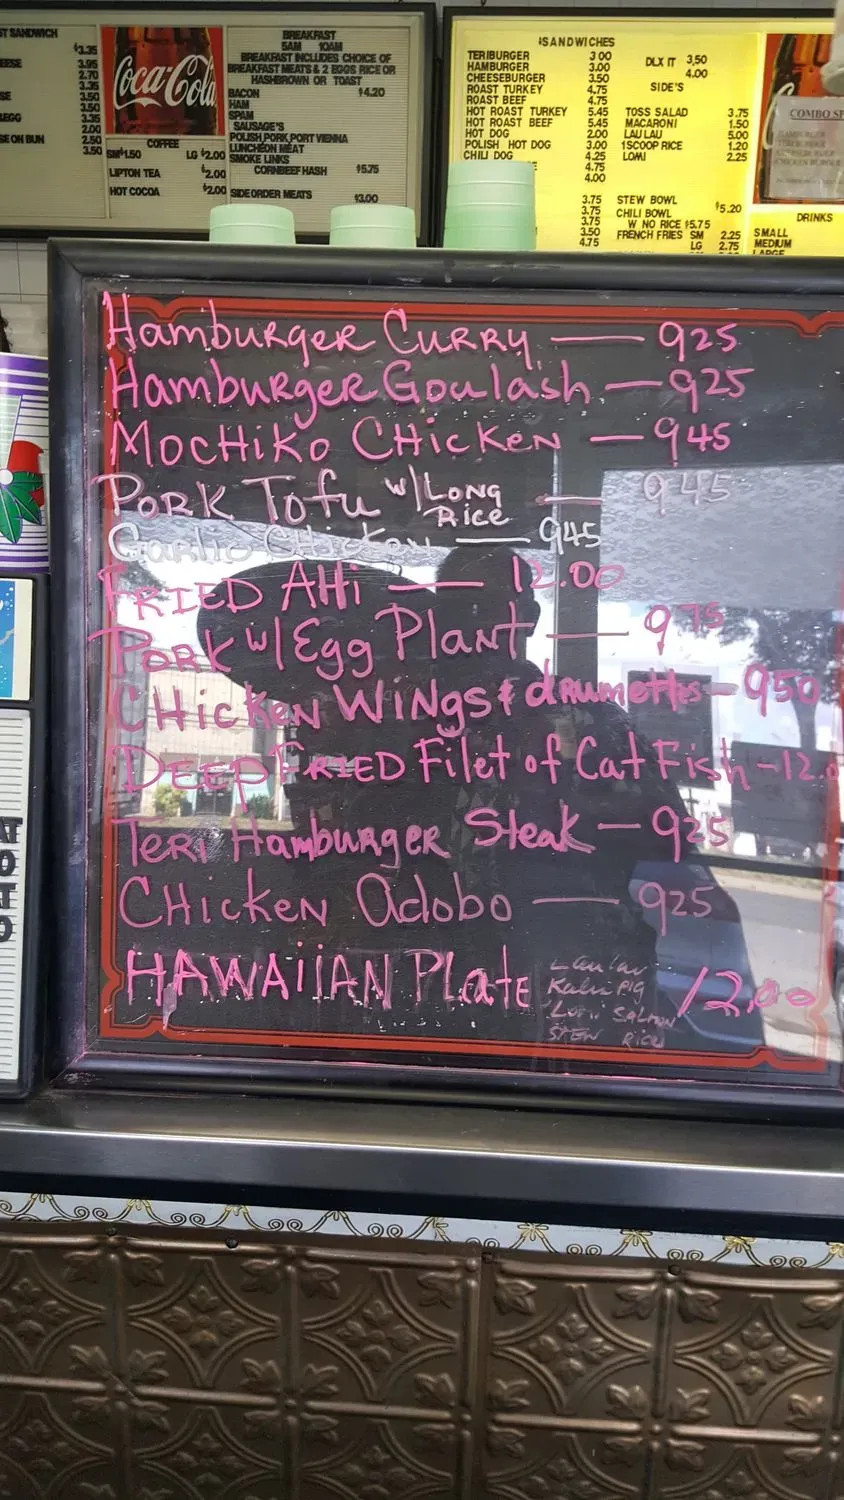 ST SANDWICH
$3.35
ESE 3.95
2.70
3.35
SE 3.50
3.50
EGG 3.35
2.00
SE ON BUN 2.50
3.50
Coca-Cola
COFFEE
SM $1.50 LG $2.00
LIPTON TEA $2.00
HOT COCOA $2.00
BREAKFAST
5AM 10AM
BREAKFAST INCLUDES CHOICE OF
BREAKFAST MEATS & 2 EGGS RICE OR
HASHBROWN OR TOAST
BACON $4.20
HAM
SPAM
SAUSAGE'S
POLISH,PORK,PORT VIENNA
LUNCHEON MEAT
SMOKE LINKS
CORNBEEF HASH $5.75
SIDE ORDER MEATS $3.00
SANDWICHES
TERIBURGER 3 00
HAMBURGER 3.00
CHEESEBURGER 3.50
ROAST TURKEY 4.75
ROAST BEEF 4.75
HOT ROAST TURKEY 5.45
HOT ROAST BEEF 5.45
HOT DOG 2.00
POLISH HOT DOG 3.00
CHILI DOG 4.25
4.75
4.00
3.75
3.75
3.75
3.50
4.75
DLX IT 3,50
4.00
SIDE'S
TOSS SALAD 3.75
MACARONI 1.50
LAU LAU 5.00
1SCOOP RICE 1.20
LOMI 2.25
STEW BOWL
CHILI BOWL $5.20
W NO RICE $5.75
FRENCH FRIES SM 2.25
LG 2.75
COMBO SP
HAMBURGER
CHICKEN BURGER
DRINKS
SMALL
MEDIUM
LARGE
Hamburger Curry — 925
Hamburger Goulash — 925
Mochiko Chicken — 945
Pork Tofu w/ Long Rice — 945
Garlic Chicken — 945
Fried Ahi — 12.00
Pork w/ Egg Plant — 975
Chicken Wings & drumettes — 950
Deep Fried Filet of Cat Fish — 12.0
Teri Hamburger Steak — 925
Chicken Adobo — 925
HAWAiiAN Plate 12.00
Lau lau
Kalu Pig
Lomi Salmon
Stew Rice